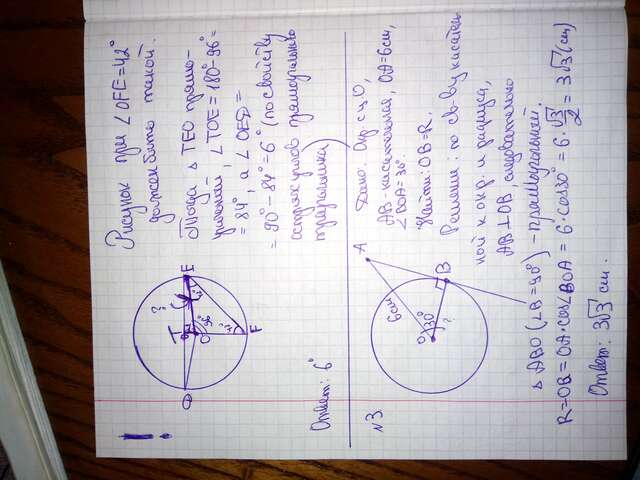 Рисунок при ∠OFE=42°
должен быть такой.
Тогда △ TEO прямо-
угольный, ∠TOE = 180°-96°=
= 84°, а ∠OED =
= 90°-84°=6° (по свойству
острых углов прямоугольного
треугольника)
!
D
T
O
E
F
?
96°
42°
42°
Ответ: 6°
N3
Дано: Окр с ц O,
AB-касательная, OA=6см,
∠BOA=30°.
Найти: OB=R.
Решение: по св-ву касатель
ной к окр. и радиуса,
AB⊥OB, следовательно
A
B
O
6см
30°
?
△ ABO (∠B=90°) - прямоугольный.
R=OB=OA·cos∠BOA = 6·cos30° = 6·√3/2 = 3√3 (см)
Ответ: 3√3 см.